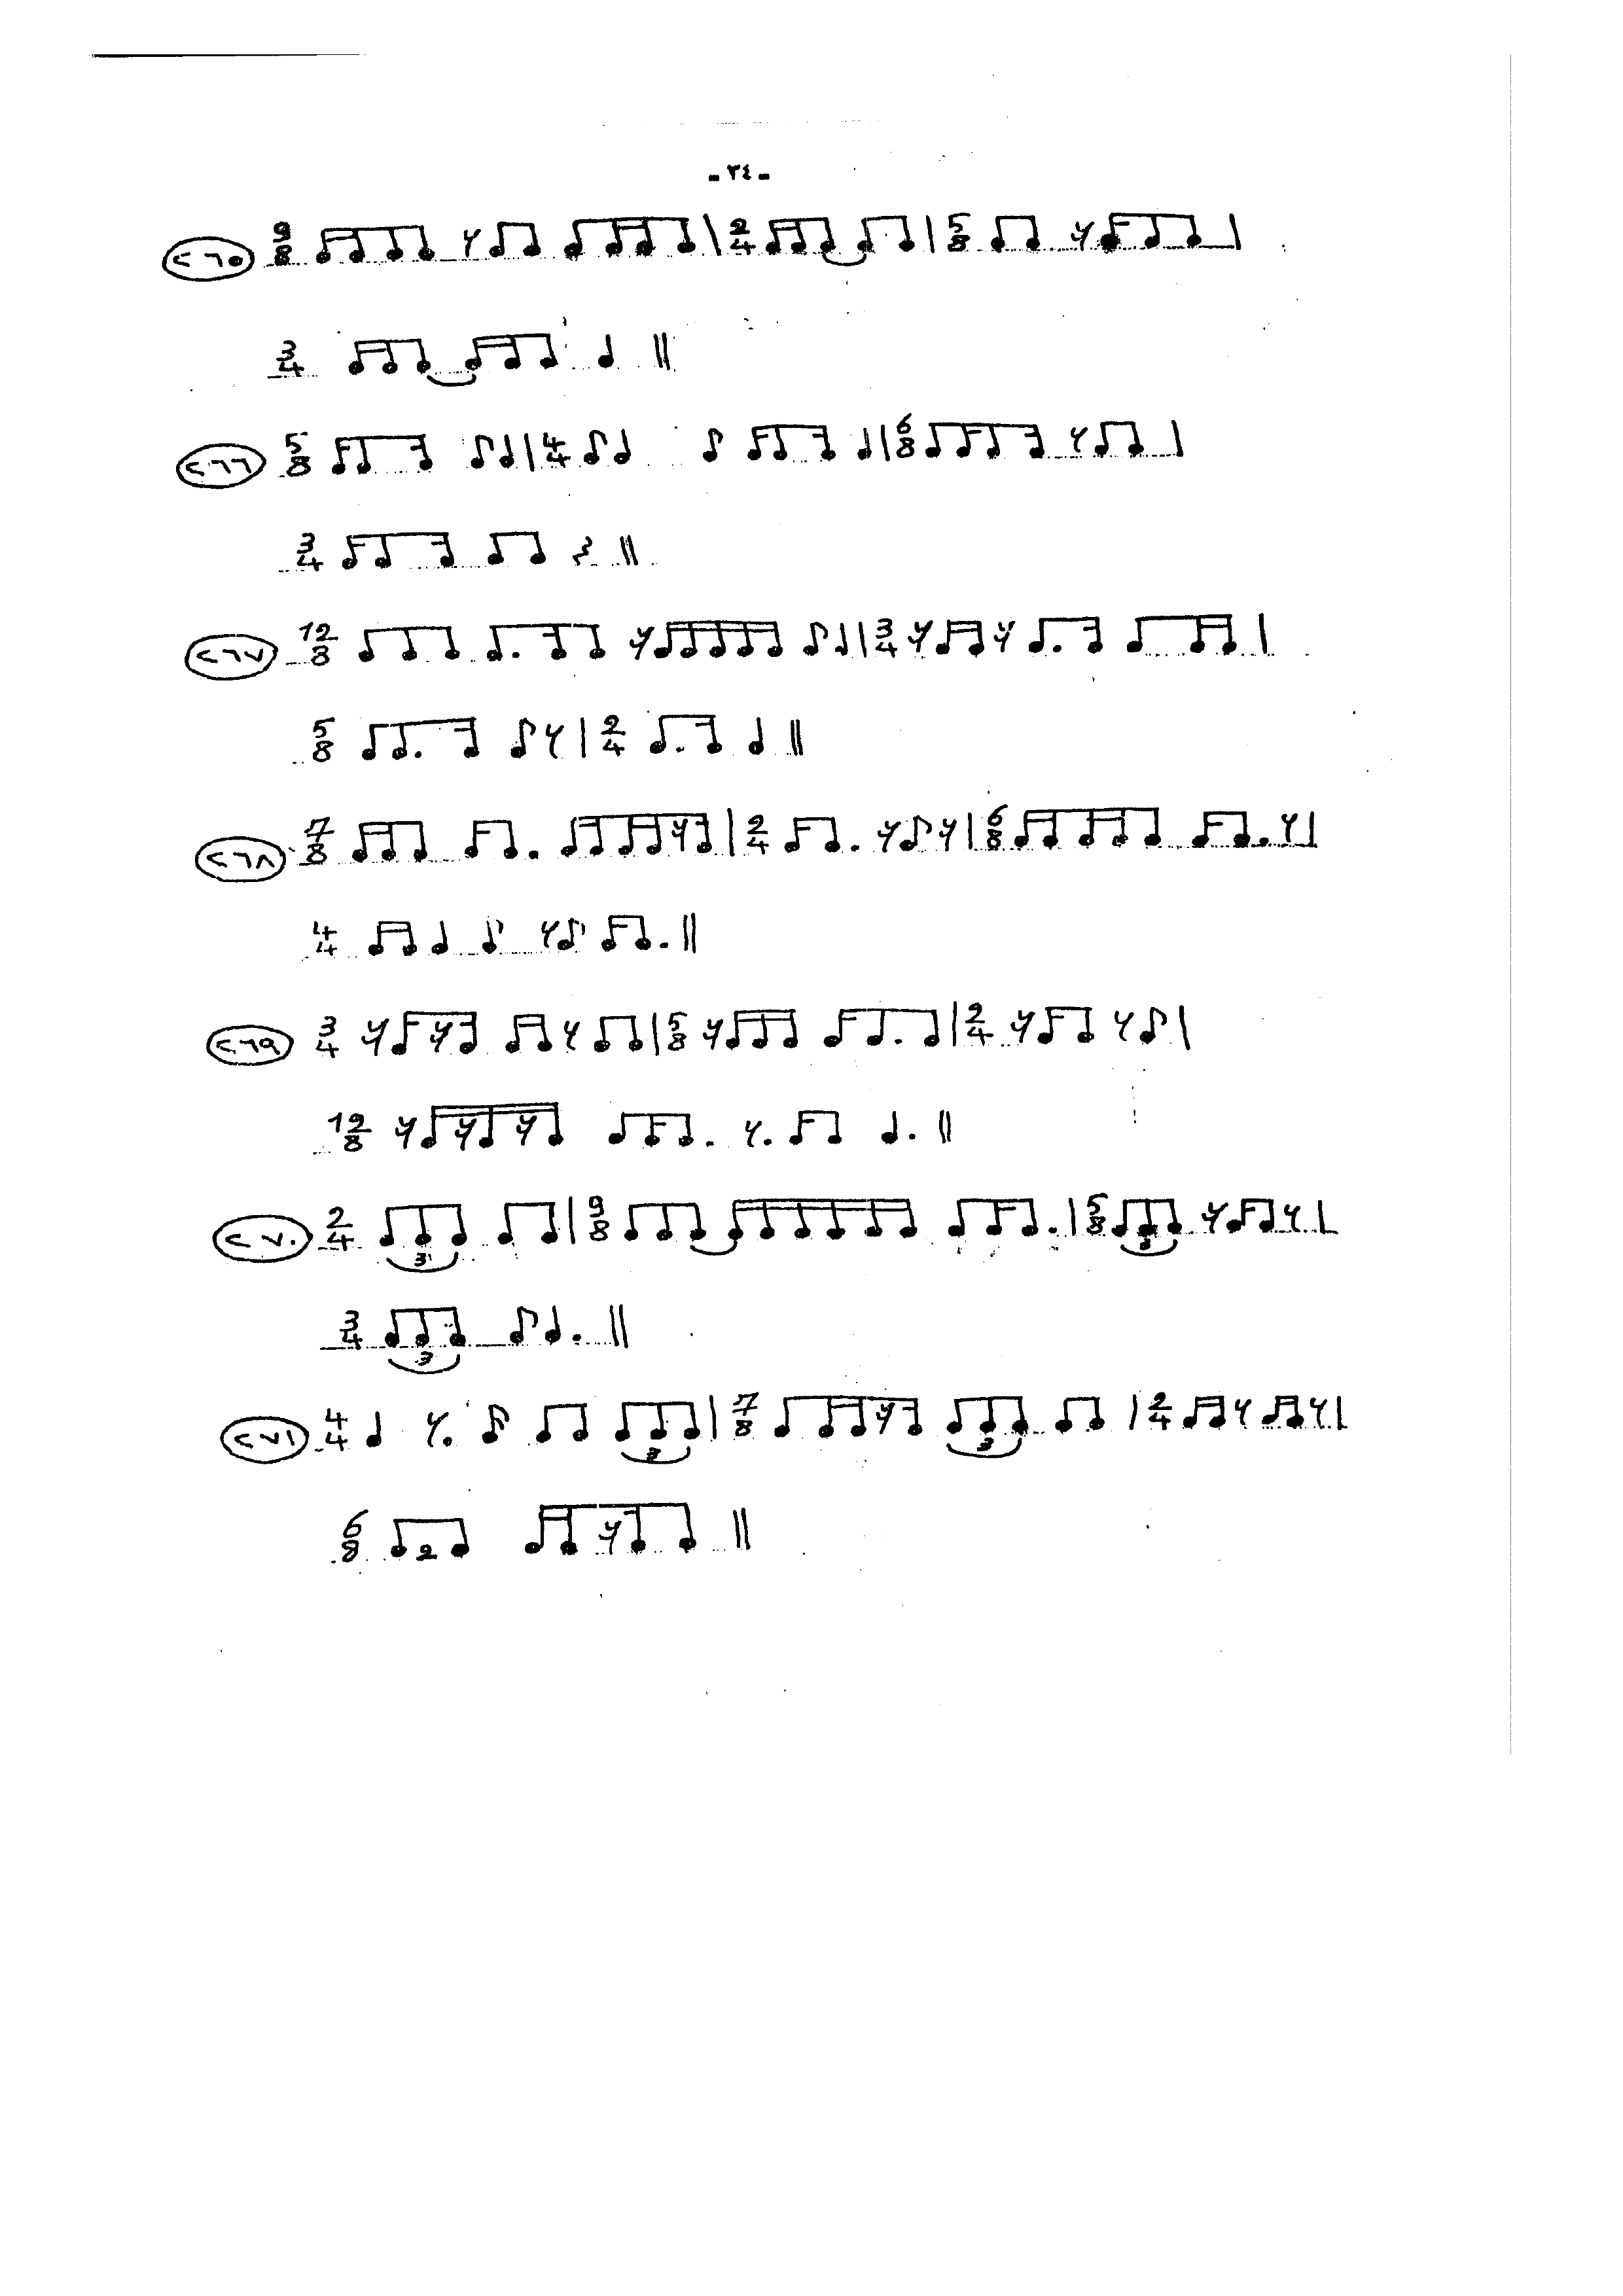 - ٣٤ -
٢٦٥ 9/8 2/4 5/8
3/4
٢٦٦ 5/8 4/4 6/8
3/4
٢٦٧ 12/8 3/4
5/8 2/4
٢٦٨ 7/8 2/4 6/8
4/4
٢٦٩ 3/4 5/8 2/4
12/8
٢٧٠ 2/4 9/8 5/8
3 3
3/4
3
٢٧١ 4/4 7/8 2/4
3 3
6/8 2